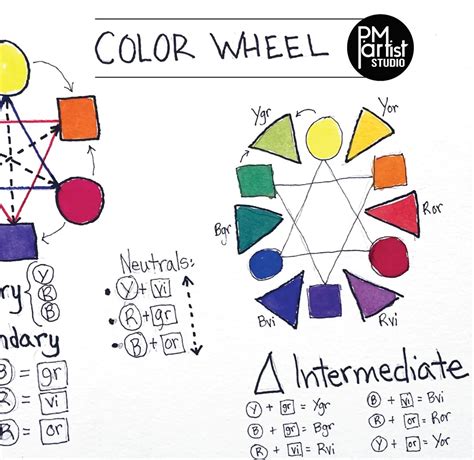 COLOR WHEEL
PM
artist
STUDIO
Ygr
Yor
Bgr
Ror
Bvi
Rvi
Neutrals:
• Y + vi
• R + gr
• B + or
ry { Y
R
B
ndary
B = gr
= vi
= or
Δ Intermediate
Y + gr = Ygr
B + gr = Bgr
R + vi = Rvi
B + vi = Bvi
R + or = Ror
Y + or = Yor